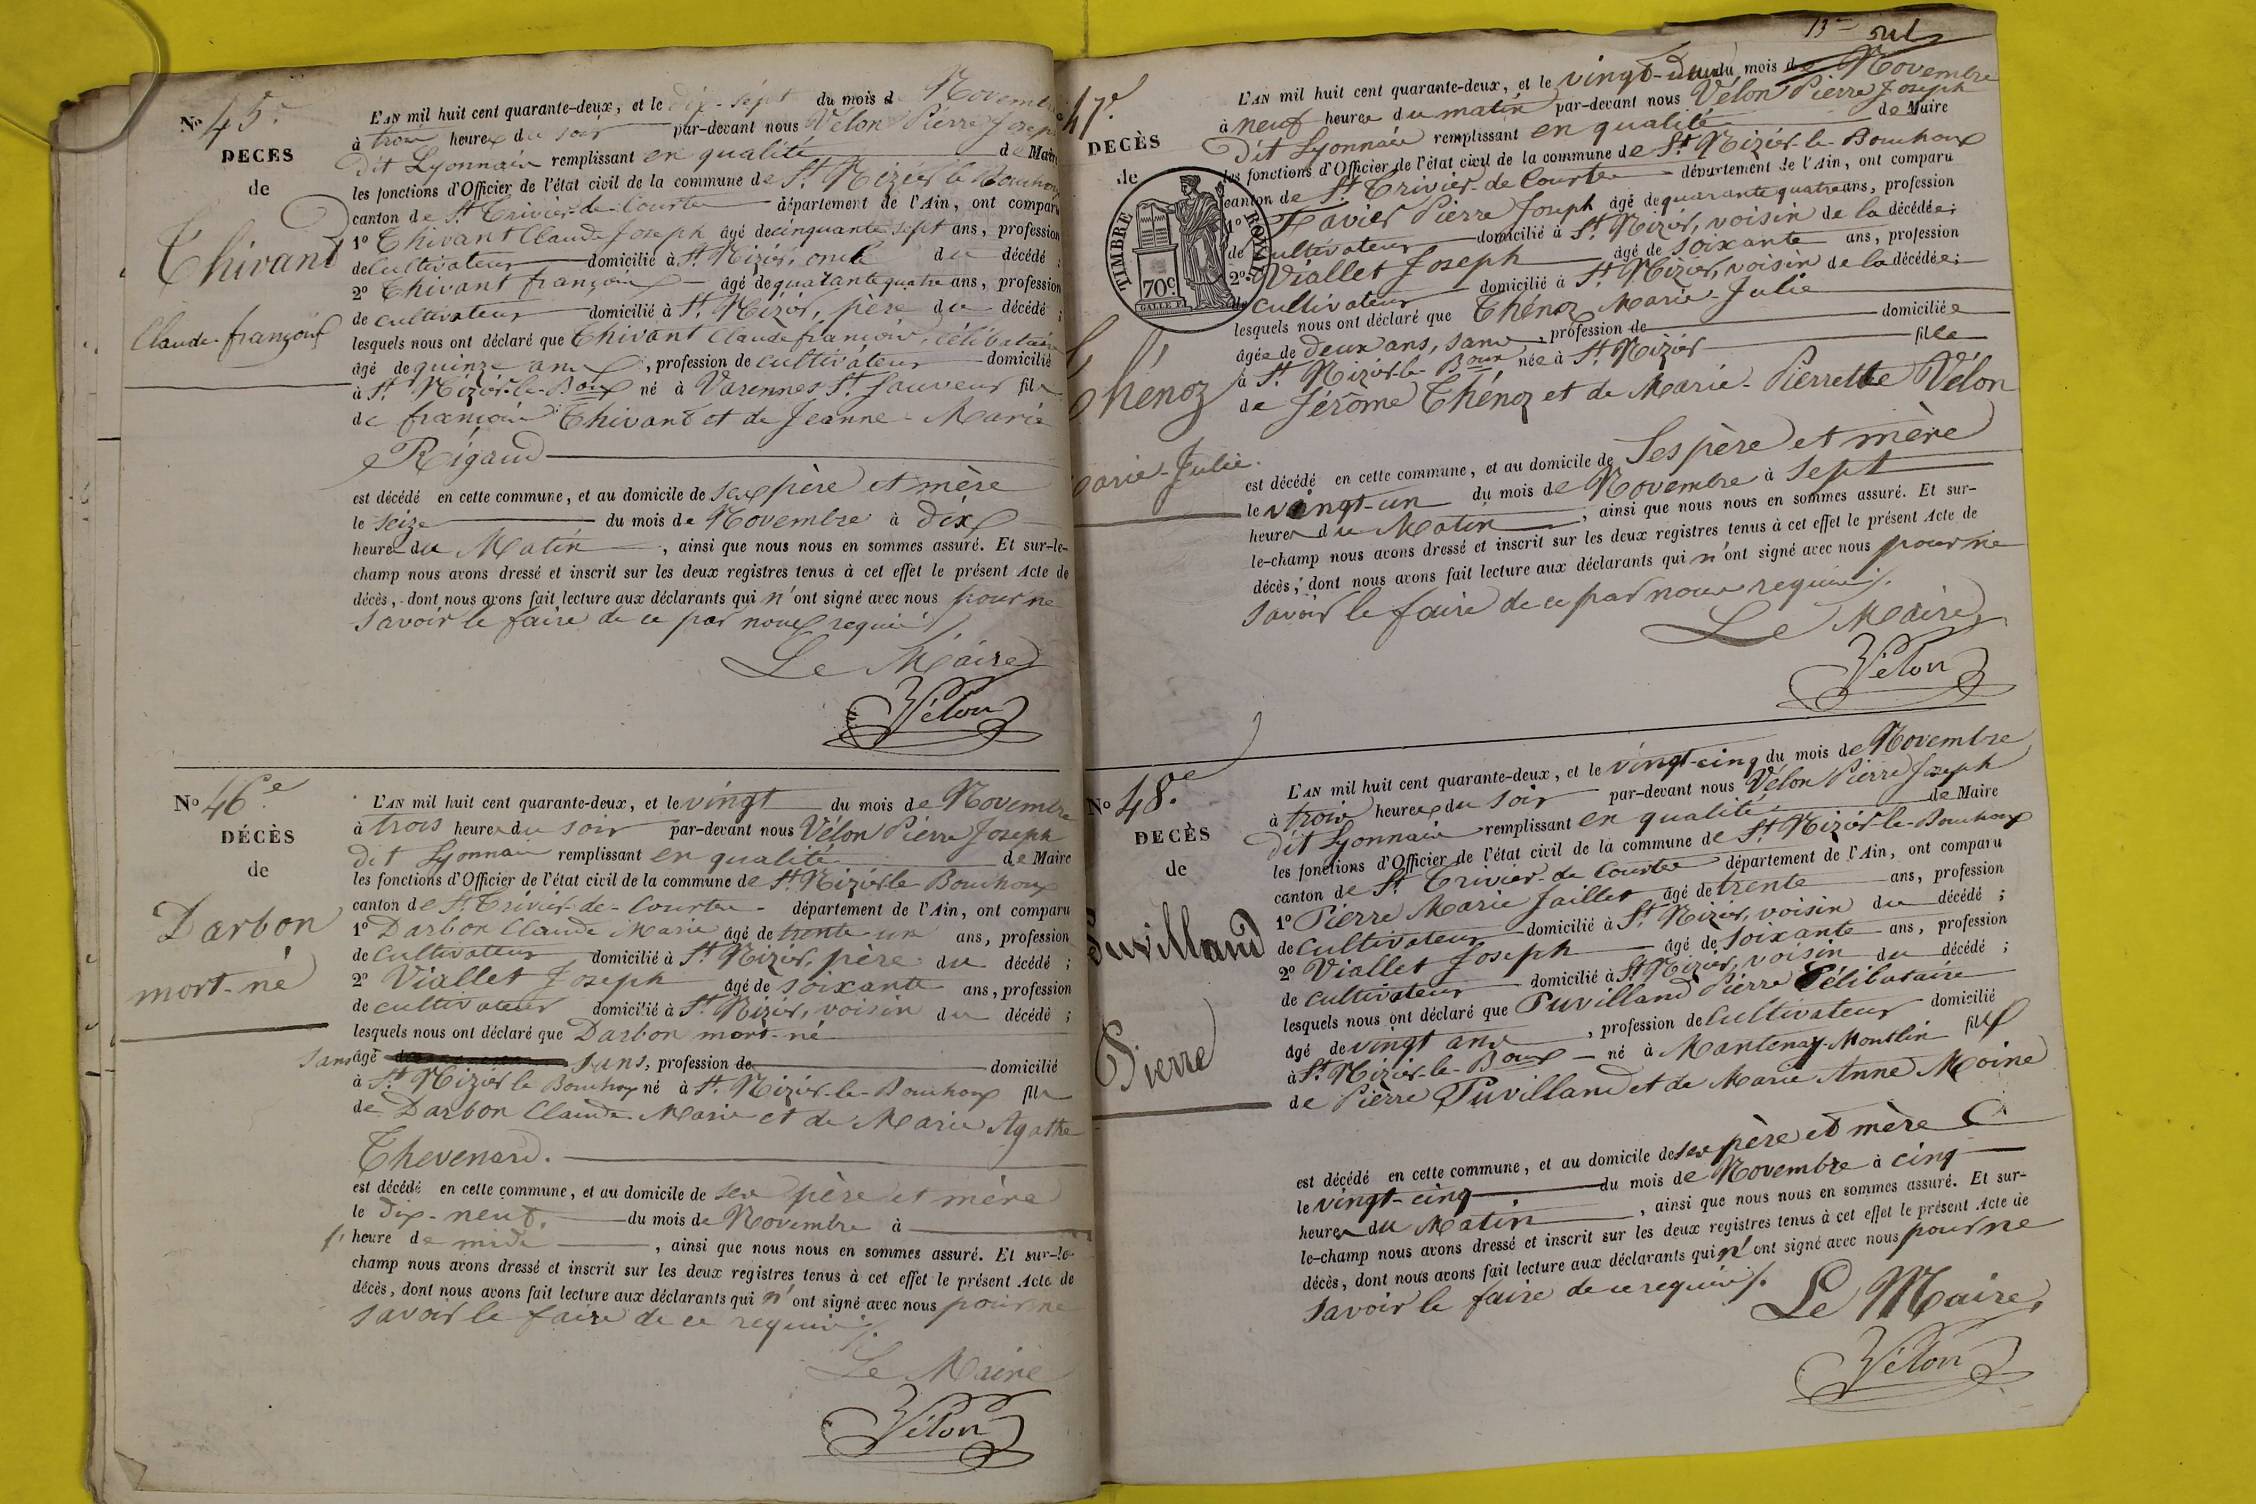 No 45.e
DECES
de
Thivant
Claude-françois
L'AN mil huit cent quarante-deux, et le dix-sept du mois de Novembre
à trois heures du soir par-devant nous Vélon Pierre Joseph
dit Lyonnais remplissant en qualité de Maire
les fonctions d'Officier de l'état civil de la commune de St Nizier le Bouchoux
canton de St Trivier-de-Courtes département de l'Ain, ont comparu
1o Thivant Claude Joseph âgé de cinquante sept ans, profession
de cultivateur domicilié à St Nizier, oncle du décédé ;
2o Thivant françois âgé de quarante quatre ans, profession
de cultivateur domicilié à St Nizier, père du décédé ;
lesquels nous ont déclaré que Thivant Claude françois, célibataire
âgé de quinze ans, profession de cultivateur domicilié
à St Nizier-le-Boux né à Varennes St Sauveur fils
de françois Thivant et de Jeanne-Marie
Rigaud
est décédé en cette commune, et au domicile de ses père et mère
le seize du mois de Novembre à dix
heures du Matin, ainsi que nous nous en sommes assuré. Et sur-le-
champ nous avons dressé et inscrit sur les deux registres tenus à cet effet le présent Acte de
décès, dont nous avons fait lecture aux déclarants qui n'ont signé avec nous pour ne
savoir le faire de ce par nous requis.
Le Maire
Vélon
No 46.e
DÉCÈS
de
Darbon
mort-né
L'AN mil huit cent quarante-deux, et le vingt du mois de Novembre
à trois heures du soir par-devant nous Vélon Pierre Joseph
dit Lyonnais remplissant en qualité de Maire
les fonctions d'Officier de l'état civil de la commune de St Nizier-le Bouchoux
canton de St Trivier-de-Courtes département de l'Ain, ont comparu
1o Darbon Claude Marie âgé de trente un ans, profession
de cultivateur domicilié à St Nizier, père du décédé ;
2o Viallet Joseph âgé de soixante ans, profession
de cultivateur domicilié à St Nizier, voisin du décédé ;
lesquels nous ont déclaré que Darbon mort-né
sans âgé sans, profession de domicilié
à St Nizier le Bouchoux né à St Nizier-le-Bouchoux fils
de Darbon Claude-Marie et de Marie Agathe
Thevenard.
est décédé en cette commune, et au domicile de ses père et mère
le dix-neuf, du mois de Novembre à
heure de midi, ainsi que nous nous en sommes assuré. Et sur-le-
champ nous avons dressé et inscrit sur les deux registres tenus à cet effet le présent Acte de
décès, dont nous avons fait lecture aux déclarants qui n'ont signé avec nous pour ne
savoir le faire de ce requis.
Le Maire
Vélon
47.e
DECÈS
de
TIMBRE ROYAL
70c.
Thénoz
Marie-Julie.
L'AN mil huit cent quarante-deux, et le vingt-deux du mois de Novembre
à neuf heures du matin par-devant nous Vélon Pierre Joseph
dit Lyonnais remplissant en qualité de Maire
les fonctions d'Officier de l'état civil de la commune de St Nizier-le-Bouchoux
canton de St Trivier-de-Courtes département de l'Ain, ont comparu
1o Xavier Pierre Joseph âgé de quarante quatre ans, profession
de cultivateur domicilié à St Nizier, voisin de la décédée ;
2o Viallet Joseph âgé de soixante ans, profession
de cultivateur domicilié à St Nizier, voisin de la décédée ;
lesquels nous ont déclaré que Thénoz Marie-Julie
âgée de deux ans, sans profession de domiciliée
à St Nizier-le-Boux née à St Nizier fille
de Jérôme Thénoz et de Marie-Pierrette Vélon
est décédé en cette commune, et au domicile de Ses père et mère
le vingt-un du mois de Novembre à sept
heures du Matin, ainsi que nous nous en sommes assuré. Et sur-
le-champ nous avons dressé et inscrit sur les deux registres tenus à cet effet le présent Acte de
décès, dont nous avons fait lecture aux déclarants qui n'ont signé avec nous pour ne
savoir le faire de ce par nous requis.
Le Maire
Vélon
No 48.e
DECÈS
de
Puvilland
Pierre
L'AN mil huit cent quarante-deux, et le vingt-cinq du mois de Novembre
à trois heures du soir par-devant nous Vélon Pierre Joseph
dit Lyonnais remplissant en qualité de Maire
les fonctions d'Officier de l'état civil de la commune de St Nizier-le-Bouchoux
canton de St Trivier-de-Courtes département de l'Ain, ont comparu
1o Pierre Marie Jaillet âgé de trente ans, profession
de cultivateur domicilié à St Nizier, voisin du décédé ;
2o Viallet Joseph âgé de soixante ans, profession
de cultivateur domicilié à St Nizier, voisin du décédé ;
lesquels nous ont déclaré que Puvilland Pierre Célibataire
âgé de vingt ans, profession de Cultivateur domicilié
à St Nizier-le-Boux né à Mantenay-Montlin fils
de Pierre Puvilland et de Marie Anne Moine
est décédé en cette commune, et au domicile de ses père et mère
le vingt-cinq du mois de Novembre à cinq
heures du Matin, ainsi que nous nous en sommes assuré. Et sur-
le-champ nous avons dressé et inscrit sur les deux registres tenus à cet effet le présent Acte de
décès, dont nous avons fait lecture aux déclarants qui n'ont signé avec nous pour ne
savoir le faire de ce requis.
Le Maire,
Vélon